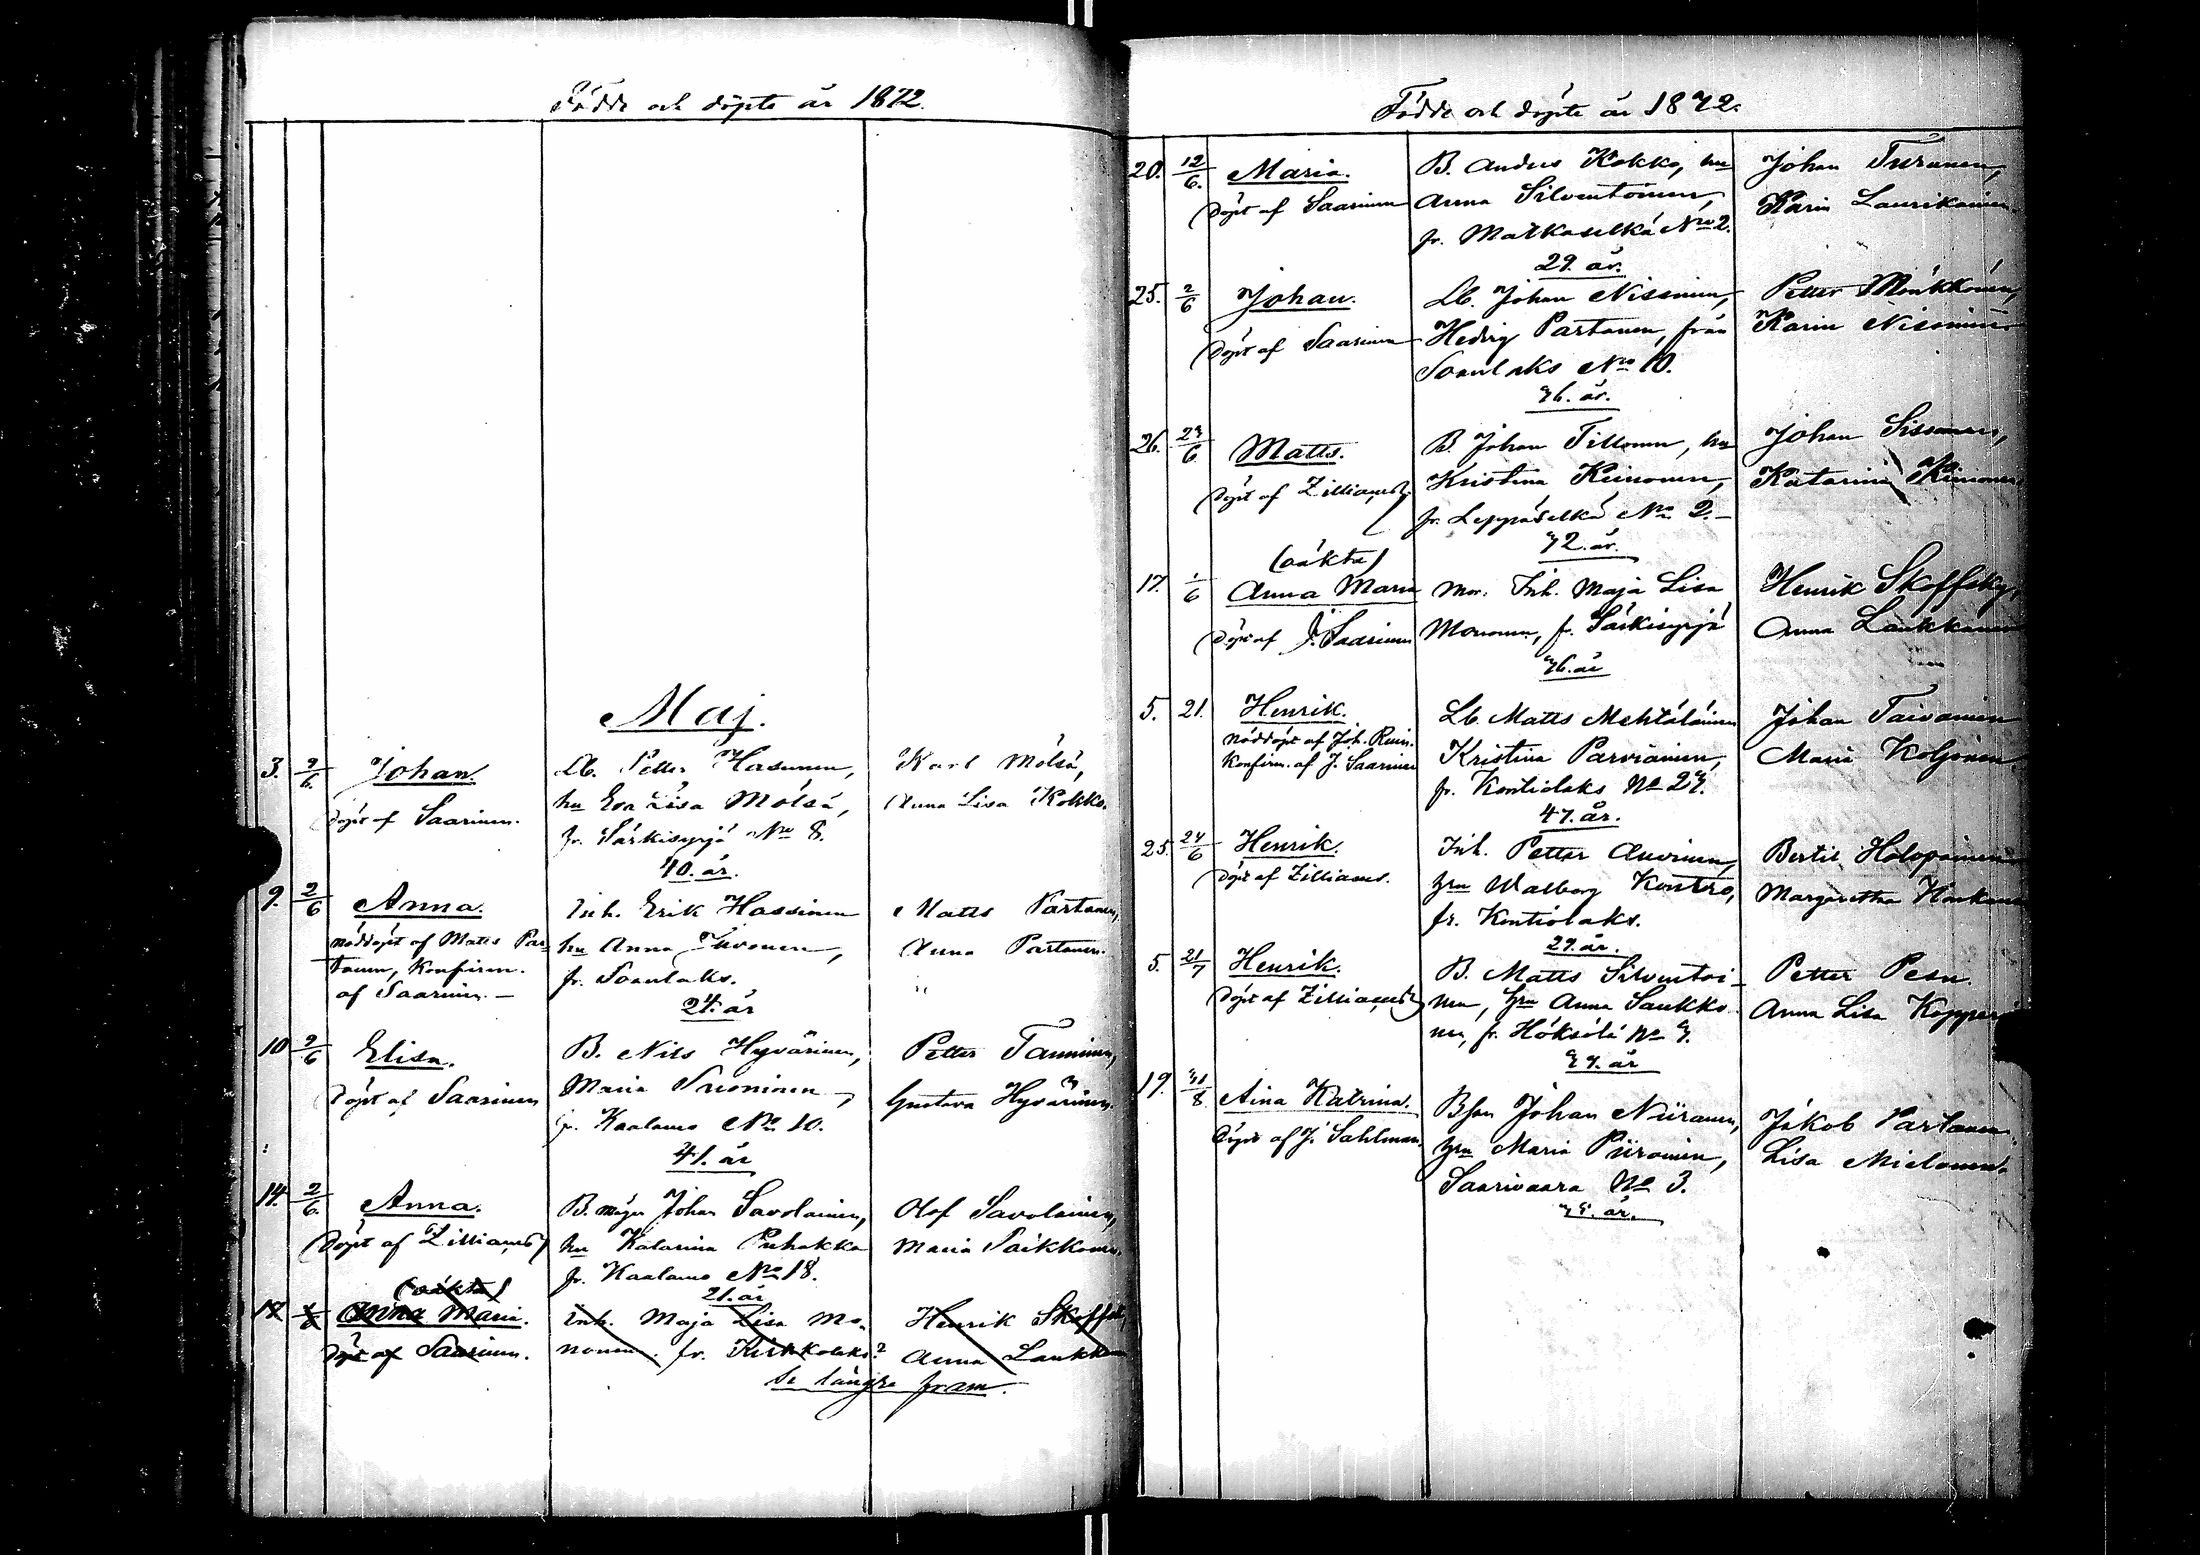 Födde och döpte år 1872.
Maj.
3. 2/6 Johan. Lb. Petter Hasunen, Karl Mölsä,
döpt af Saarinen. hu Eva Lisa Mölsä, Anna Lisa Kokko.
fr. Särkisyrjä No 8.
40. år.
9. 2/6 Anna. Inh. Erik Hassinen Matts Partanen,
nöddöpt af Matts Par- hu Anna Turunen, Anna Partanen.
tanen, Konfirm. fr. Soanlaks.
af Saarinen. —
24. år
10 2/6 Elisa. B. Nils Hyvärinen, Petter Tanninen,
Döpt af Saarinen Maria Suoninen, Gustava Hyvärinen.
fr. Kaalamo No 10.
41. år
14. 2/6 Anna. B. måg Johan Savolainen, Olof Savolainen,
Döpt af Zilliacus hu Katarina Puhakka Maria Paikkonen.
fr. Kaalamo No 18.
21. år
(oäkta)
17 1/6 Anna Maria. Inh. Maja Lisa Mo- Henrik Skoffsky,
Döpt af Saarinen. nonen. fr. Kirkkolaks? Anna Laukkanen
Se längre fram.
Födde och döpte år 1872.
20. 12/6. Maria. B. Anders Kokko, hu Johan Turunen,
Döpt af Saarinen Anna Silventoinen, Karin Laurikainen.
fr. Matkaselkä No 2.
29. år.
25. 2/6 Johan. Lb. Johan Nissinen, Petter Mönkkönen,
Döpt af Saarinen Hedvig Partanen, från Karin Nissinen
Soanlaks No 10.
36. år.
26. 23/6 Matts. B. Johan Tillonen, hu Johan
Döpt af Zilliacus Kristina Reinonen, Katarina
fr. Leppäselkä No 2. —
32. år.
(oäkta)
17. 1/6 Anna Maria Mor. Inh. Maja Lisa Henrik Skoffsky,
Döpt af J. Saarinen Mononen, fr. Särkisyrjä Anna Laukkanen
36. år
5. 21. Henrik. Lb. Matts Mehtäläinen Johan Taivainen
Nöddöpt af Joh. Kristina Parviainen, Maria Koljonen.
Konfirm. af J. Saarinen fr. Kontiolaks No 27.
47. år.
25. 24/6 Henrik. Inh. Petter Auvinen, Bertil Holopainen
Döpt af Zilliacus. hru Walborg Kontro, Margaretha
fr. Kontiolaks.
29. år.
5. 21/7 Henrik. B. Matts Silventoi- Petter Pesu.
Döpt af Zilliacus nen, hru Anna Saukko- Anna Lisa
nen, fr. Höksölä No 7.
37. år
19. 31/8. Aina Katrina. Bson Johan Niiranen, Jakob Partanen.
Döpt af J. Sahlman. hru Maria Piironen, Lisa Mielonen.
Saarivaara No 3.
38. år.